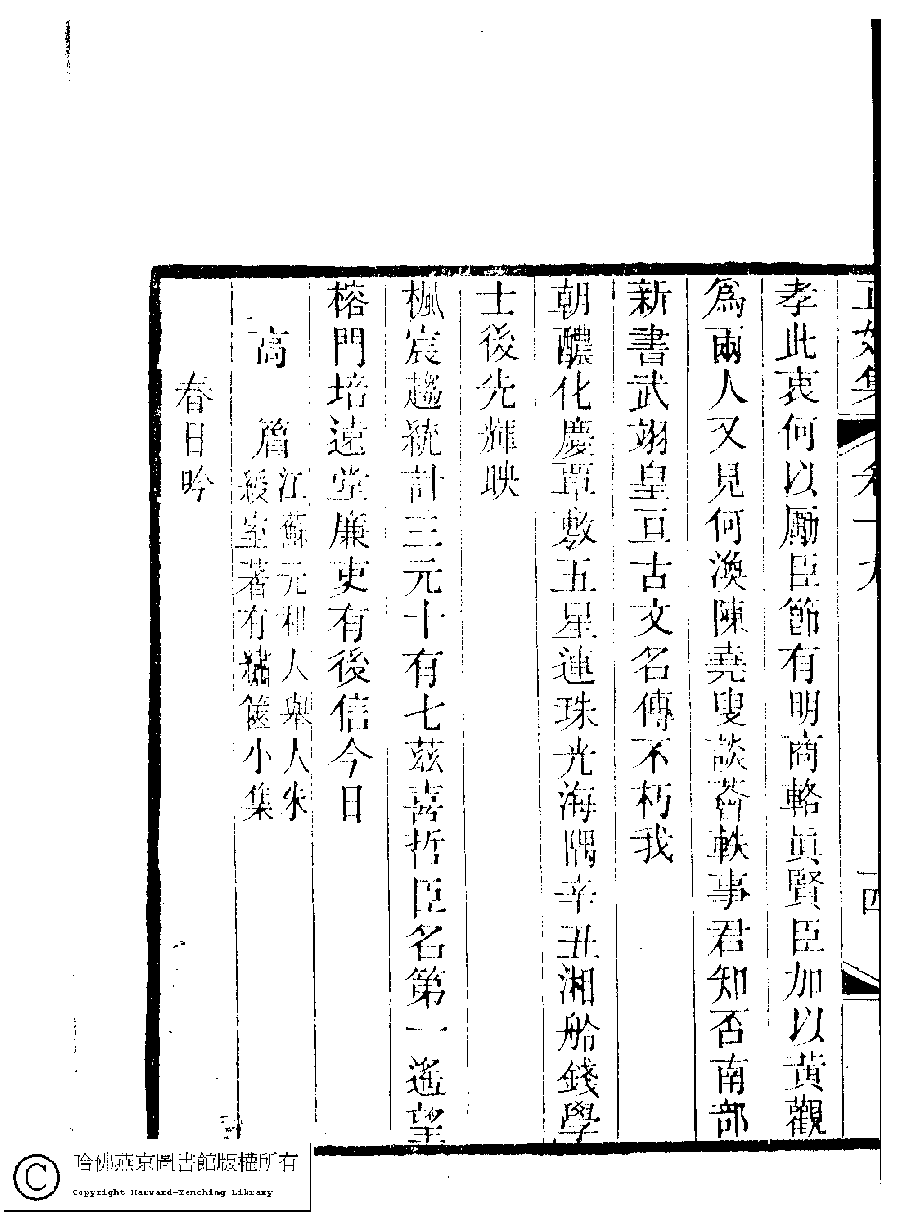 正始集 卷十九 四
孝此衷何以勵臣節有明商輅眞賢臣加以黃觀
爲兩人又見何渙陳堯叟談薈軼事君知否南部
新書武翊皇亘古文名傳不朽我
朝醲化慶覃敷五星連珠光海隅辛丑湘舲錢學
士後先輝映
楓宸趨統計三元十有七茲喜哲臣名第一遙望
榕門培遠堂廉吏有後信今日
高篃 江蘇元和人舉人朱
綬室著有繡篋小集
春日吟
哈佛燕京圖書館版權所有
Copyright Harvard-Yenching Library